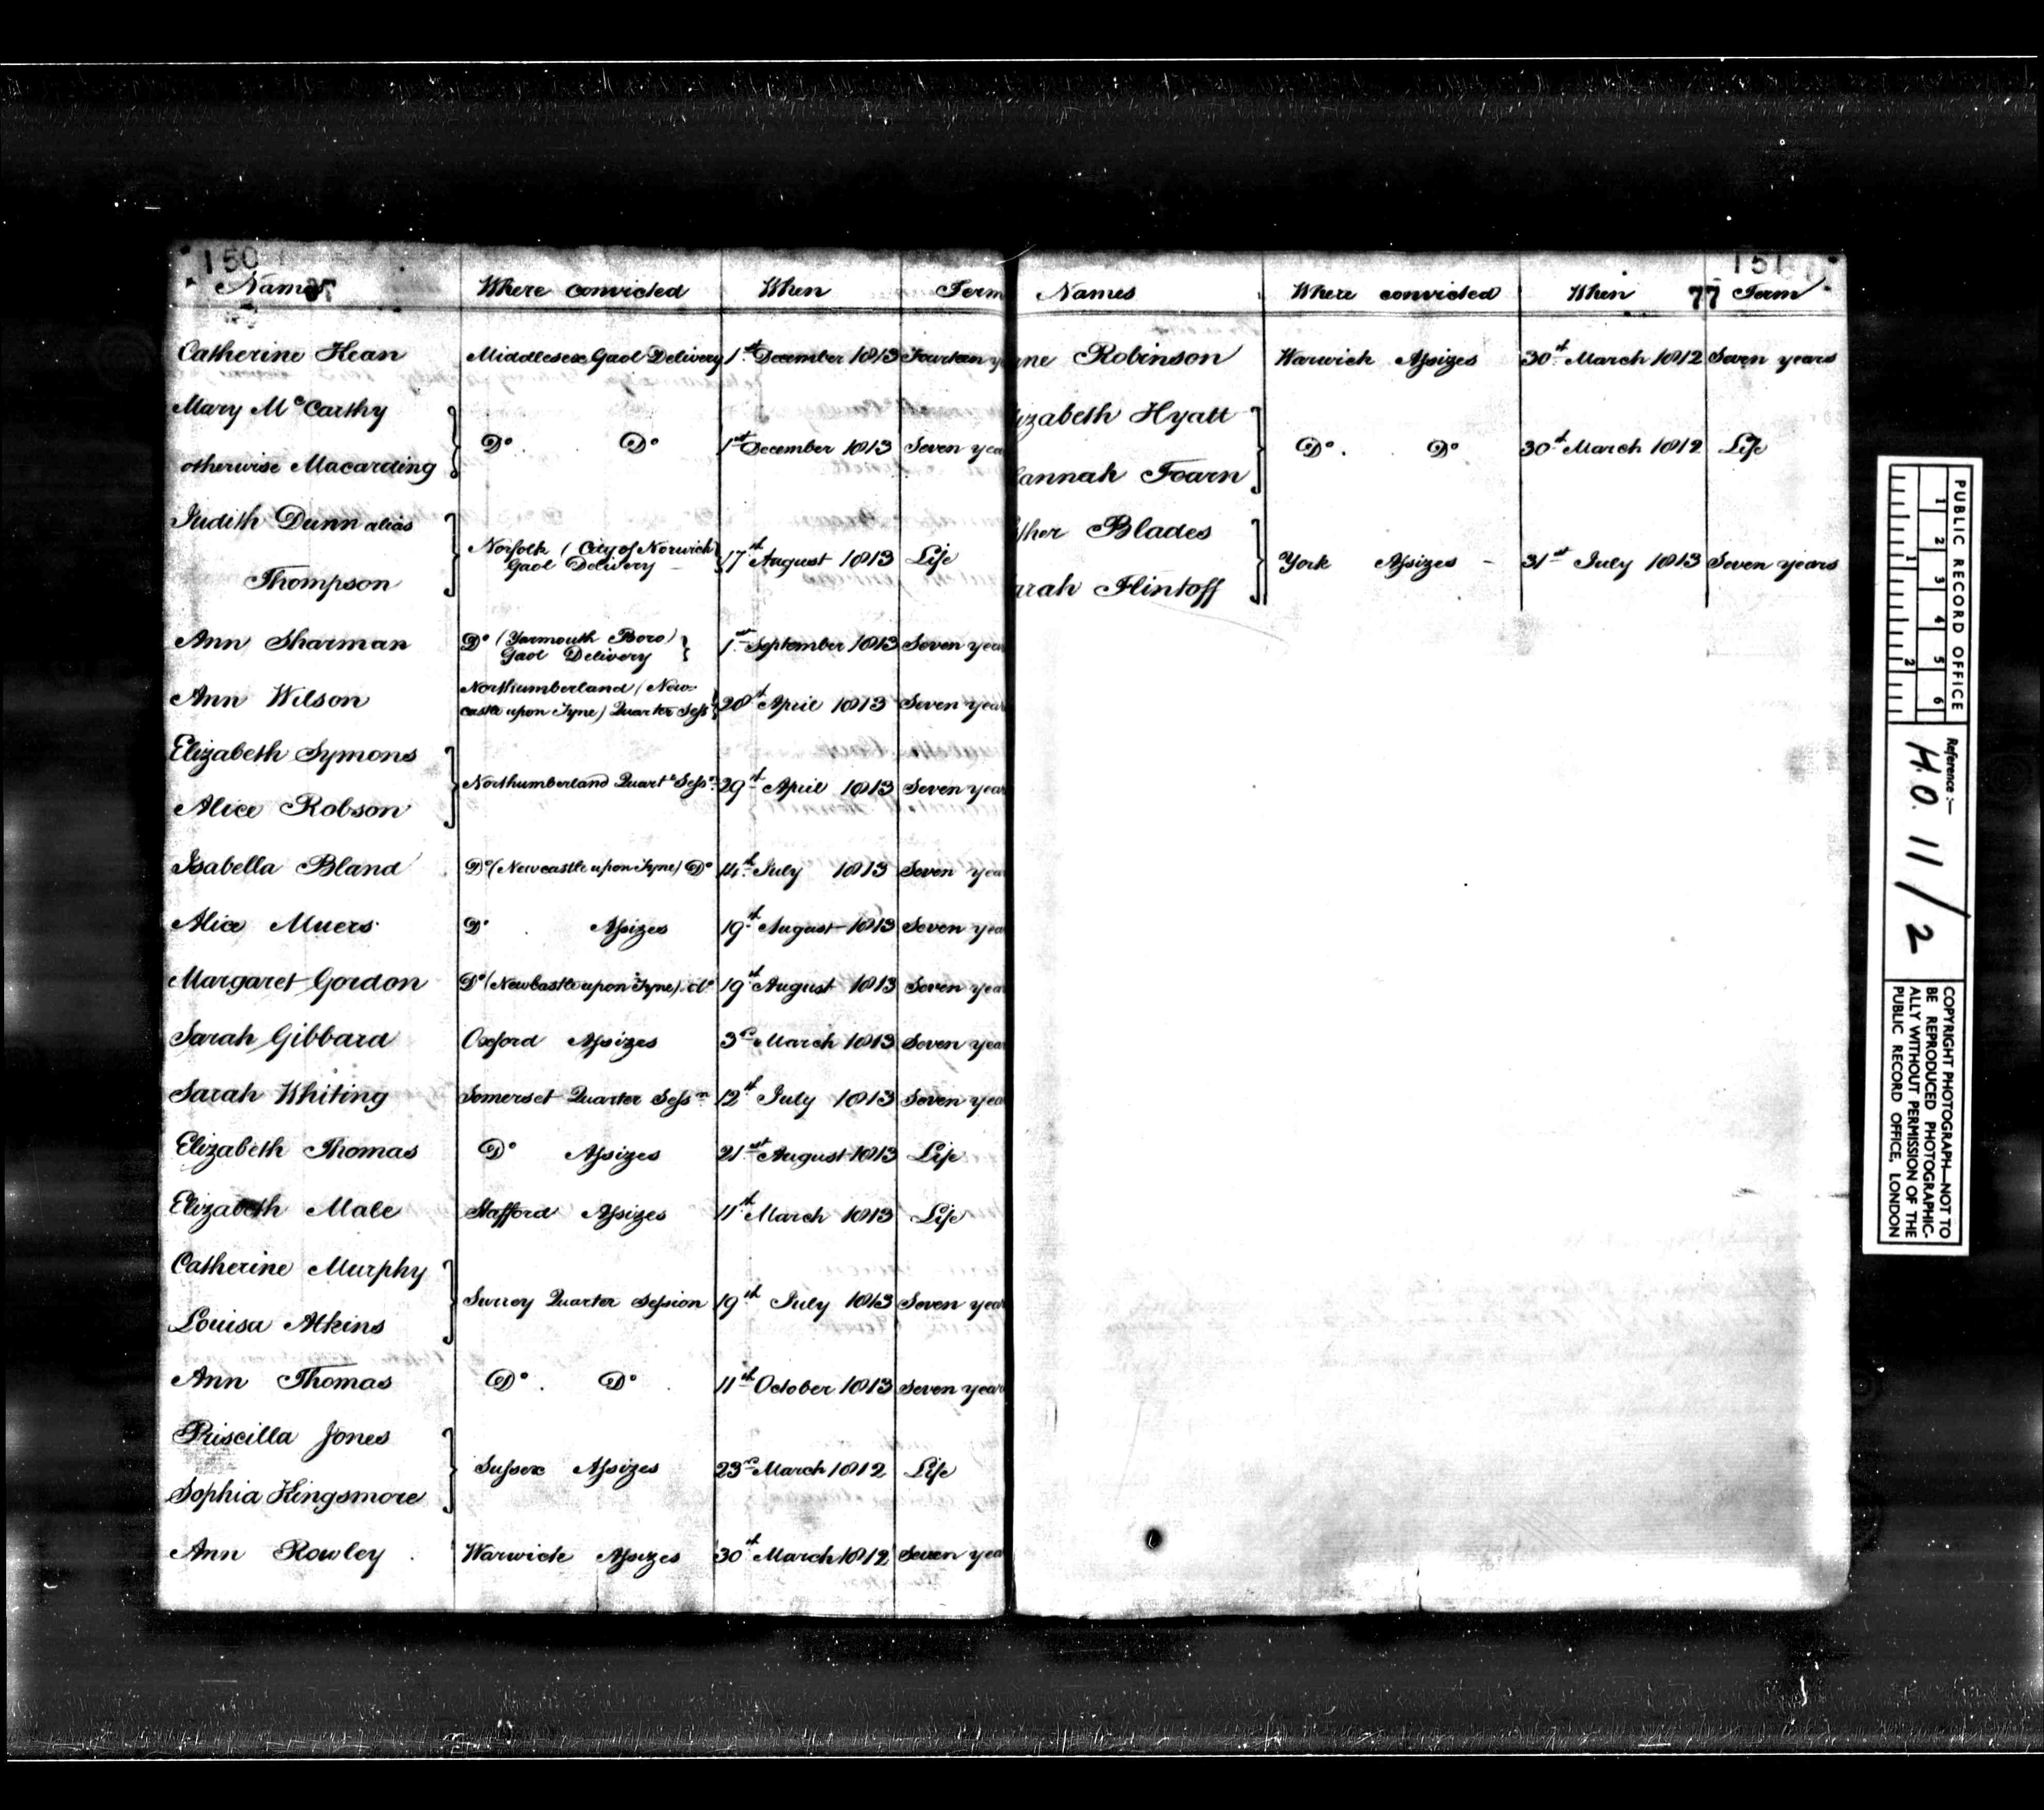 150
Names Where convicted When Term
Catherine Kean Middlesex Gaol Delivery 1st December 1813 Fourteen y
Mary McCarthy
otherwise Macarding Do. Do 1st December 1813 Seven yea
Judith Dunn alias
Thompson Norfolk (City of Norwich) Gaol Delivery 17th August 1813 Life
Ann Sharman Do (Yarmouth Boro) Gaol Delivery 1st September 1813 Seven year
Ann Wilson Northumberland (New-
castle upon Tyne) Quarter Sess 28th April 1813 Seven year
Elizabeth Symons
Alice Robson Northumberland Quartr Sessn 29th April 1813 Seven year
Isabella Bland Do (Newcastle upon Tyne) Do 14th July 1813 Seven yea
Alice Muers Do Assizes 19th August 1813 Seven yea
Margaret Gordon Do (Newcastle upon Tyne) do 19th August 1813 Seven yea
Sarah Gibbard Oxford Assizes 3rd March 1813 Seven yea
Sarah Whiting Somerset Quarter Sessn 12th July 1813 Seven yea
Elizabeth Thomas Do Assizes 21st August 1813 Life
Elizabeth Male Stafford Assizes 11th March 1813 Life
Catherine Murphy
Louisa Atkins Surrey Quarter Session 19th July 1813 Seven year
Ann Thomas Do. Do. 11th October 1813 Seven year
Priscilla Jones
Sophia Kingsmore Sussex Assizes 23rd March 1812 Life
Ann Rowley Warwick Assizes 30th March 1812 Seven yea
151
Names Where convicted When 77 Term
ne Robinson Warwick Assizes 30th March 1812 Seven years
izabeth Hyatt
annah Fearn Do. Do 30th March 1812 Life
ther Blades
arah Flintoff York Assizes - 31st July 1813 Seven years
PUBLIC RECORD OFFICE
1 2 3 4 5 6
1 2
Reference:-
H.O. 11/2
COPYRIGHT PHOTOGRAPH—NOT TO
BE REPRODUCED PHOTOGRAPHIC-
ALLY WITHOUT PERMISSION OF THE
PUBLIC RECORD OFFICE, LONDON